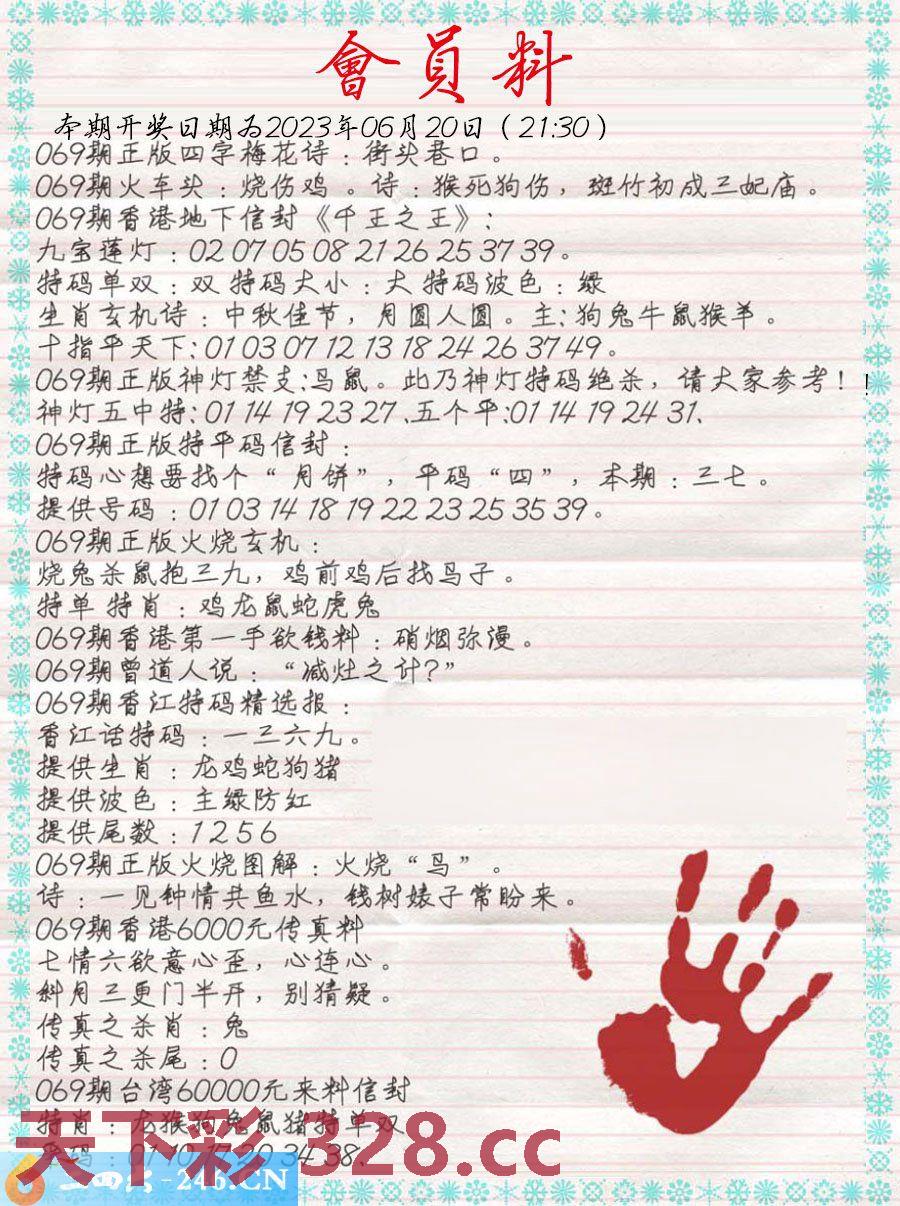 會員料
本期开奖日期为2023年06月20日（21:30）
069期正版四字梅花诗：街头巷口。
069期火车头：烧伤鸡 。诗：猴死狗伤，斑竹初成三妃庙 。
069期香港地下信封《千王之王》：
九宝莲灯：02 07 05 08 21 26 25 37 39。
特码单双：双 特码大小：大 特码波色：绿
生肖玄机诗：中秋佳节，月圆人圆。主：狗兔牛鼠猴羊 。
十指平天下：01 03 07 12 13 18 24 26 37 49。
069期正版神灯禁支:鸟鼠。此乃神灯特码绝杀，请大家参考！！
神灯五中特: 01 14 19 23 27 .五个平:01 14 19 24 31.
069期正版特平码信封：
特码心想要找个“月饼”，平码“四”，本期：三七。
提供号码：01 03 14 18 19 22 23 25 35 39。
069期正版火烧玄机：
烧兔杀鼠抱三九，鸡前鸡后找鸟子。
特单 特肖：鸡龙鼠蛇虎兔
069期香港第一手欲钱料：硝烟弥漫。
069期曾道人说：“减灶之计?”
069期香江特码精选报：
香江话特码：一三六九。
提供生肖：龙鸡蛇狗猪
提供波色：主绿防红
提供尾数：1 2 5 6
069期正版火烧图解：火烧“鸟”。
诗：一见钟情共鱼水，钱树婊子常盼来。
069期香港6000元传真料
七情六欲意心歪，心连心。
斜月三更门半开，别猜疑。
传真之杀肖：兔
传真之杀尾：0
069期台湾60000元来料信封
特肖：龙猴狗兔鼠猪特单双
平码：01 10 20 34 38.
天下彩 328.cc
二四六-246.CN